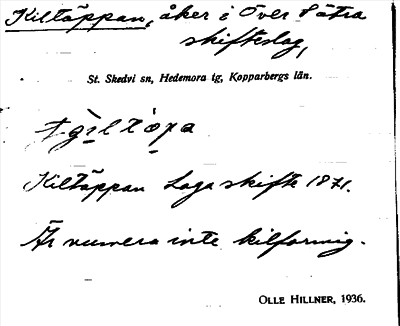 Kiltäppan, åker i Över Sätra
skifteslag,
St. Skedvi sn, Hedemora tg, Kopparbergs län.
Kiltäppan Laga skifte 1871.
Är numera inte kilformig.
OLLE HILLNER, 1936.